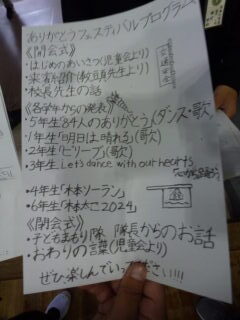 ありがとうフェスティバルプログラム
《開会式》
・はじめのあいさつ(児童会より)
・来賓紹介(教頭先生より)
・校長先生の話
《各学年からの発表》
・5年生「84人のありがとう」(ダンス・歌)
・1年生「明日は晴れる」(歌)
・2年生「ビリーブ」(歌)
・3年生「Let's dance with our hearts
・4年生「木本ソーラン」
・6年生「木本太こ2024」
《閉会式》
・子どもまもり隊 隊長からのお話
・おわりの言葉(児童会より)
ぜひ、楽しんでいってください!!!